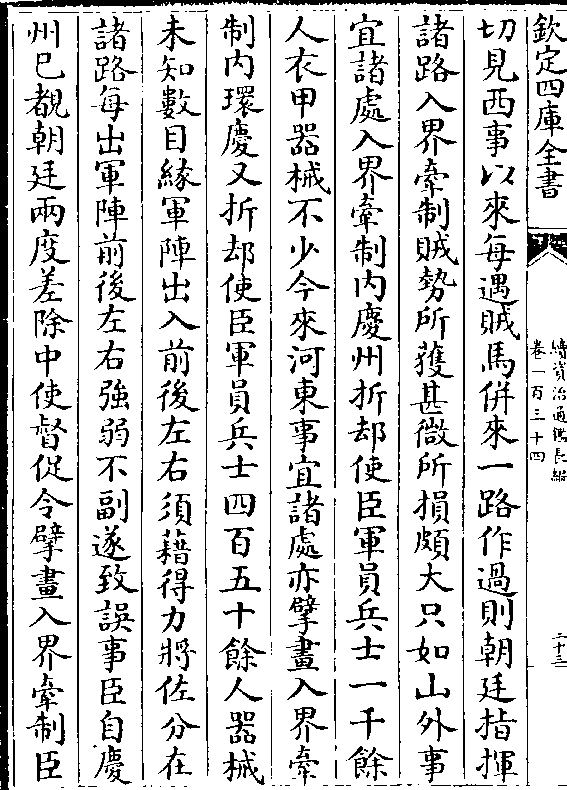 欽定四庫全書
續資治通鑑長編
卷一百三十四
二十三
切見西事以來每遇賊馬併來一路作過則朝廷指揮
諸路入界牽制賊勢所獲甚微所損頗大只如山外事
宜諸處入界牽制内慶州折却使臣軍員兵士一千餘
人衣甲器械不少今來河東事宜諸處亦擘畫入界牽
制内環慶又折却使臣軍員兵士四百五十餘人器械
未知數目緣軍陣出入前後左右須藉得力將佐分在
諸路每出軍陣前後左右強弱不副遂致誤事臣自慶
州已覩朝廷兩度差除中使督促令擘畫入界牽制臣